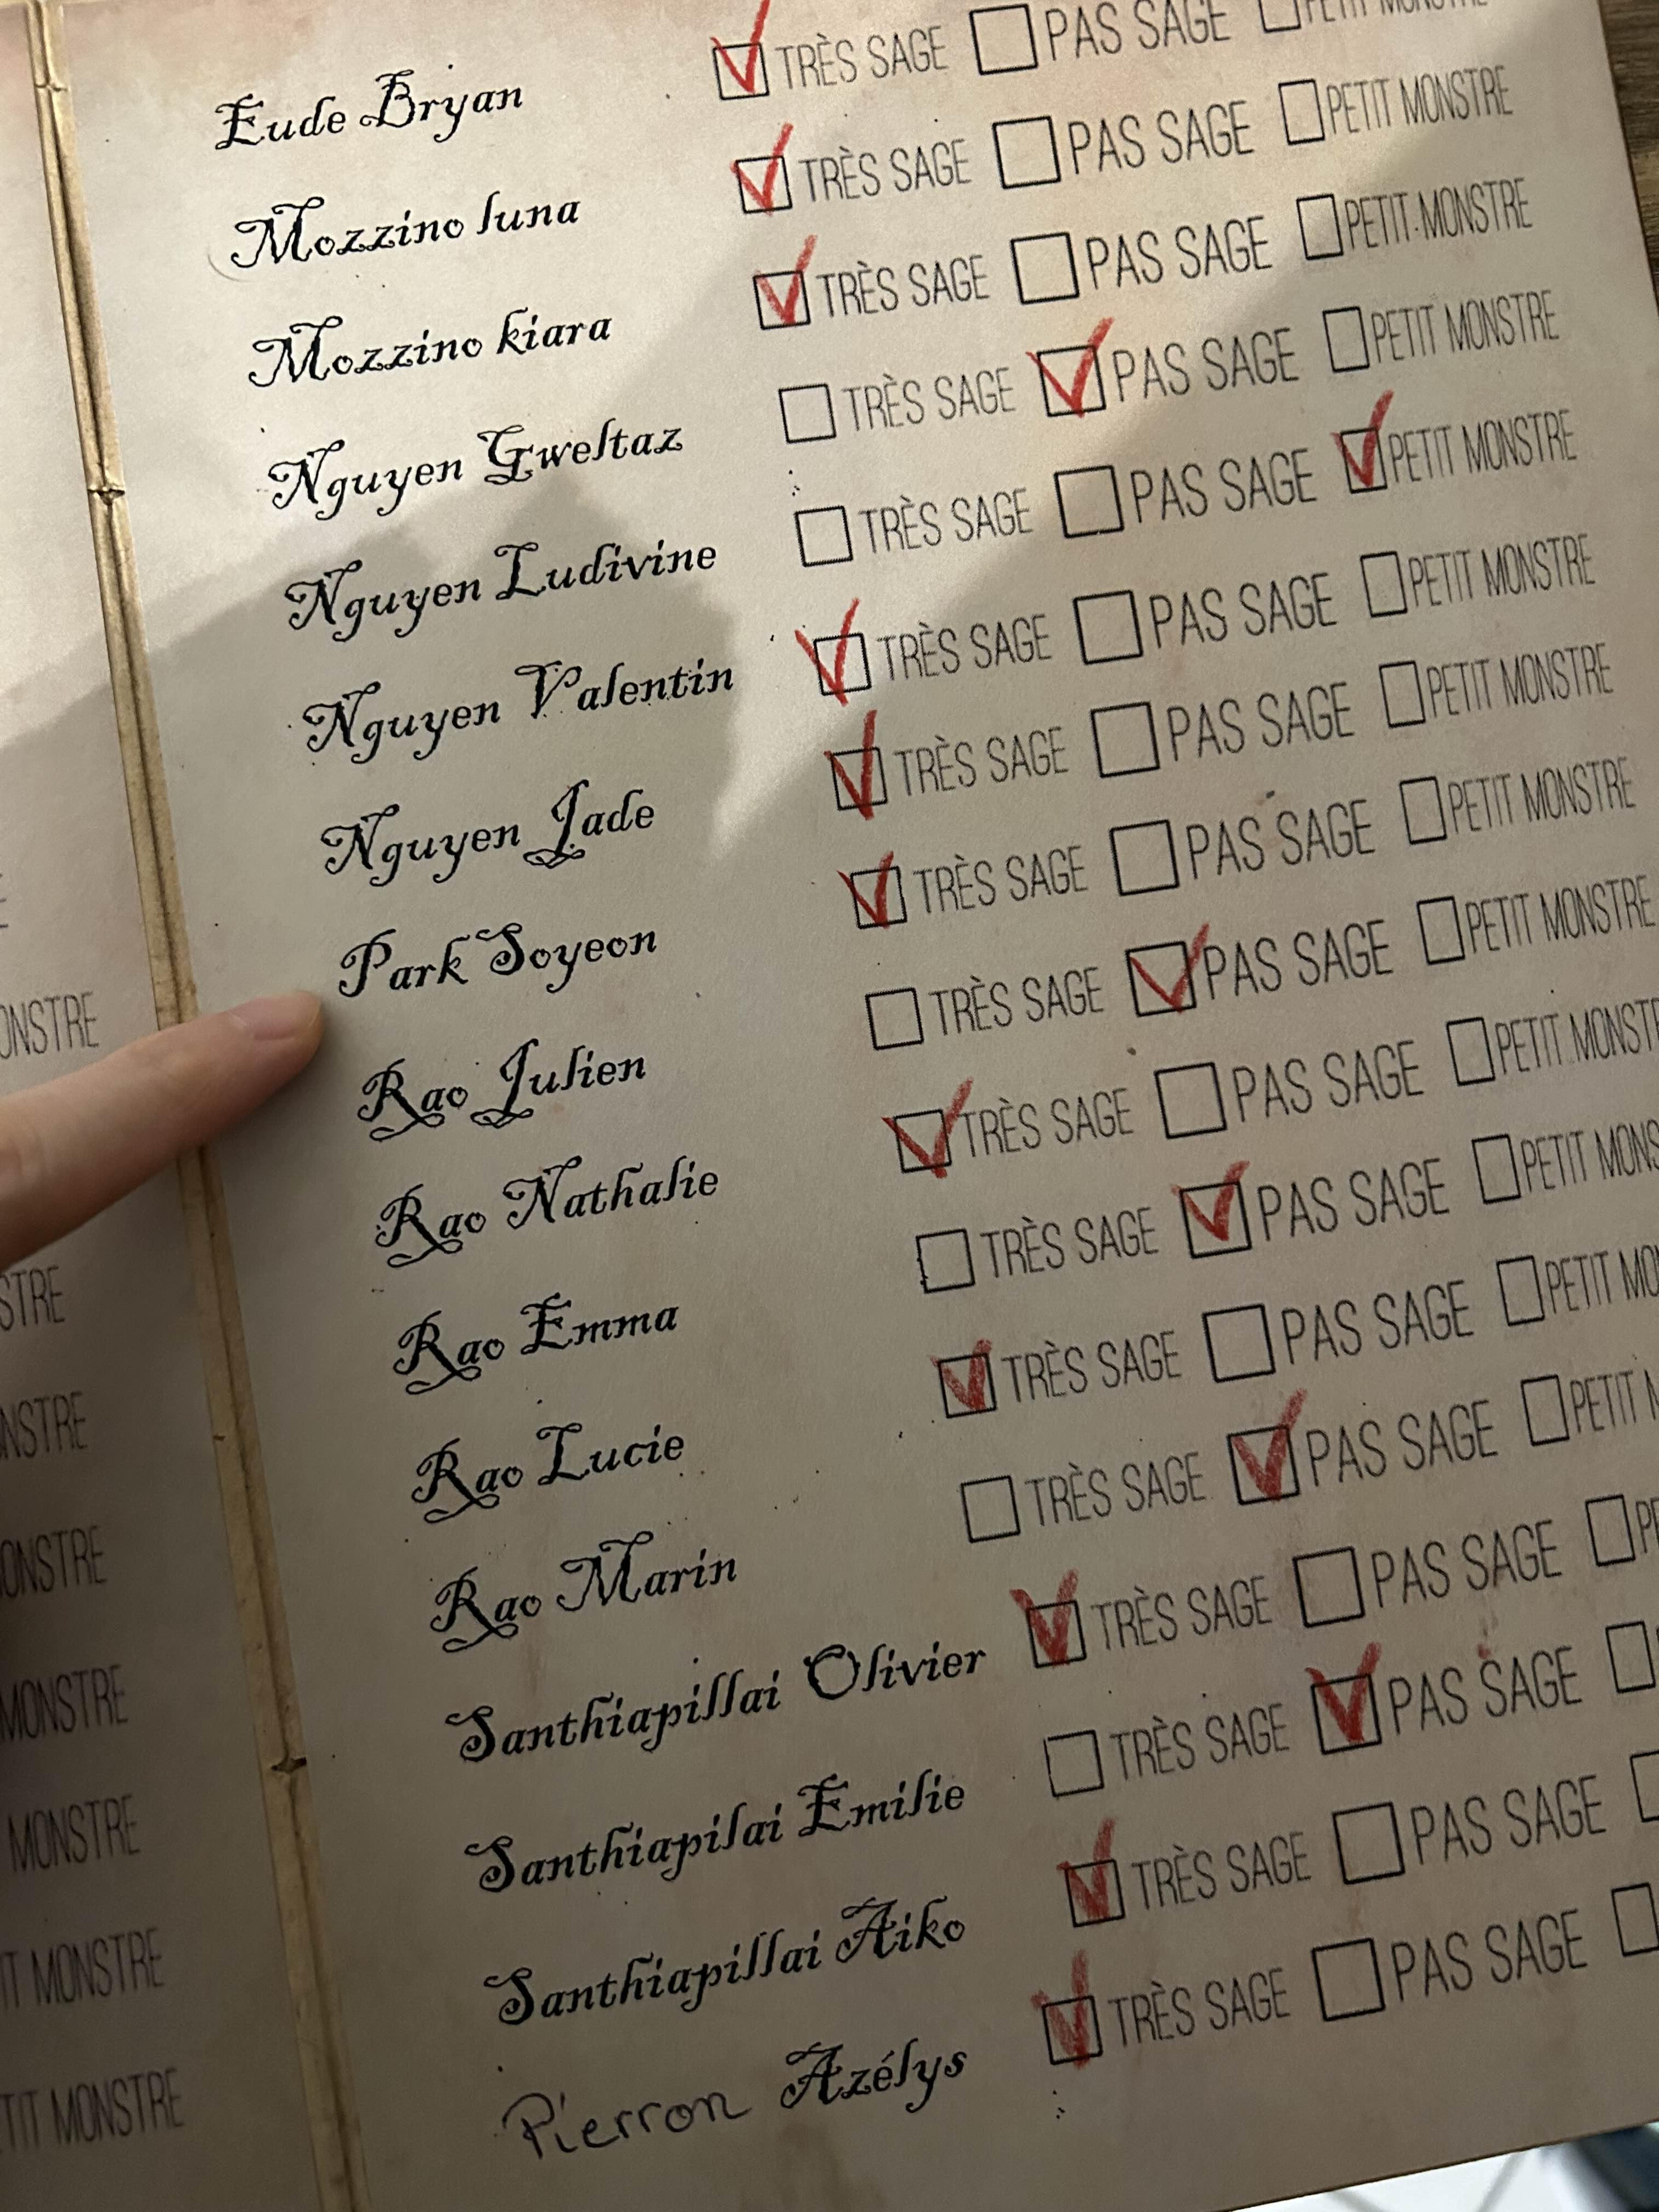 E
ONSTRE
STRE
NSTRE
ONSTRE
MONSTRE
MONSTRE
IT MONSTRE
TIT MONSTRE
Eude Bryan TRÈS SAGE PAS SAGE PETIT MONSTRE
Mozzino luna TRÈS SAGE PAS SAGE PETIT MONSTRE
Mozzino kiara TRÈS SAGE PAS SAGE PETIT MONSTRE
Nguyen Gweltaz TRÈS SAGE PAS SAGE PETIT MONSTRE
Nguyen Ludivine TRÈS SAGE PAS SAGE PETIT MONSTRE
Nguyen Valentin TRÈS SAGE PAS SAGE PETIT MONSTRE
Nguyen Jade TRÈS SAGE PAS SAGE PETIT MONSTRE
Park Soyeon TRÈS SAGE PAS SAGE PETIT MONSTRE
Rao Julien TRÈS SAGE PAS SAGE PETIT MONSTRE
Rao Nathalie TRÈS SAGE PAS SAGE PETIT MONSTR
Rao Emma TRÈS SAGE PAS SAGE PETIT MONS
Rao Lucie TRÈS SAGE PAS SAGE PETIT MO
Rao Marin TRÈS SAGE PAS SAGE PETIT M
Santhiapillai Olivier TRÈS SAGE PAS SAGE PE
Santhiapilai Emilie TRÈS SAGE PAS SAGE
Santhiapillai Aiko TRÈS SAGE PAS SAGE
Pierron Azélys TRÈS SAGE PAS SAGE